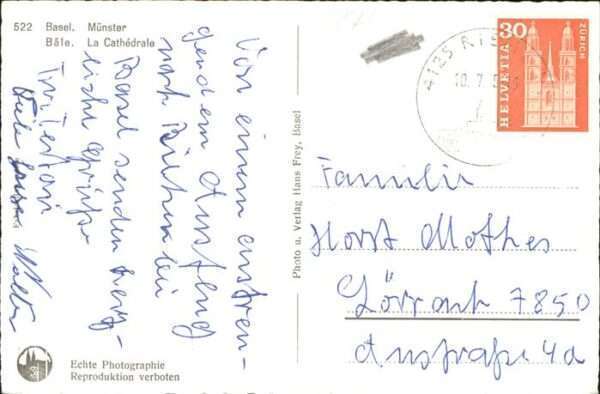 522 Basel. Münster
Bâle. La Cathédrale
Von einem anstren-
gendem Ausflug
nach Riehen bei
Basel senden herz-
liche Grüße
Walter
Echte Photographie
Reproduktion verboten
Photo u. Verlag Hans Frey, Basel
4125
10.7.
30
HELVETIA
ZÜRICH
Familie
Horst Mothes
Lörrach 7850
Austraße 4a